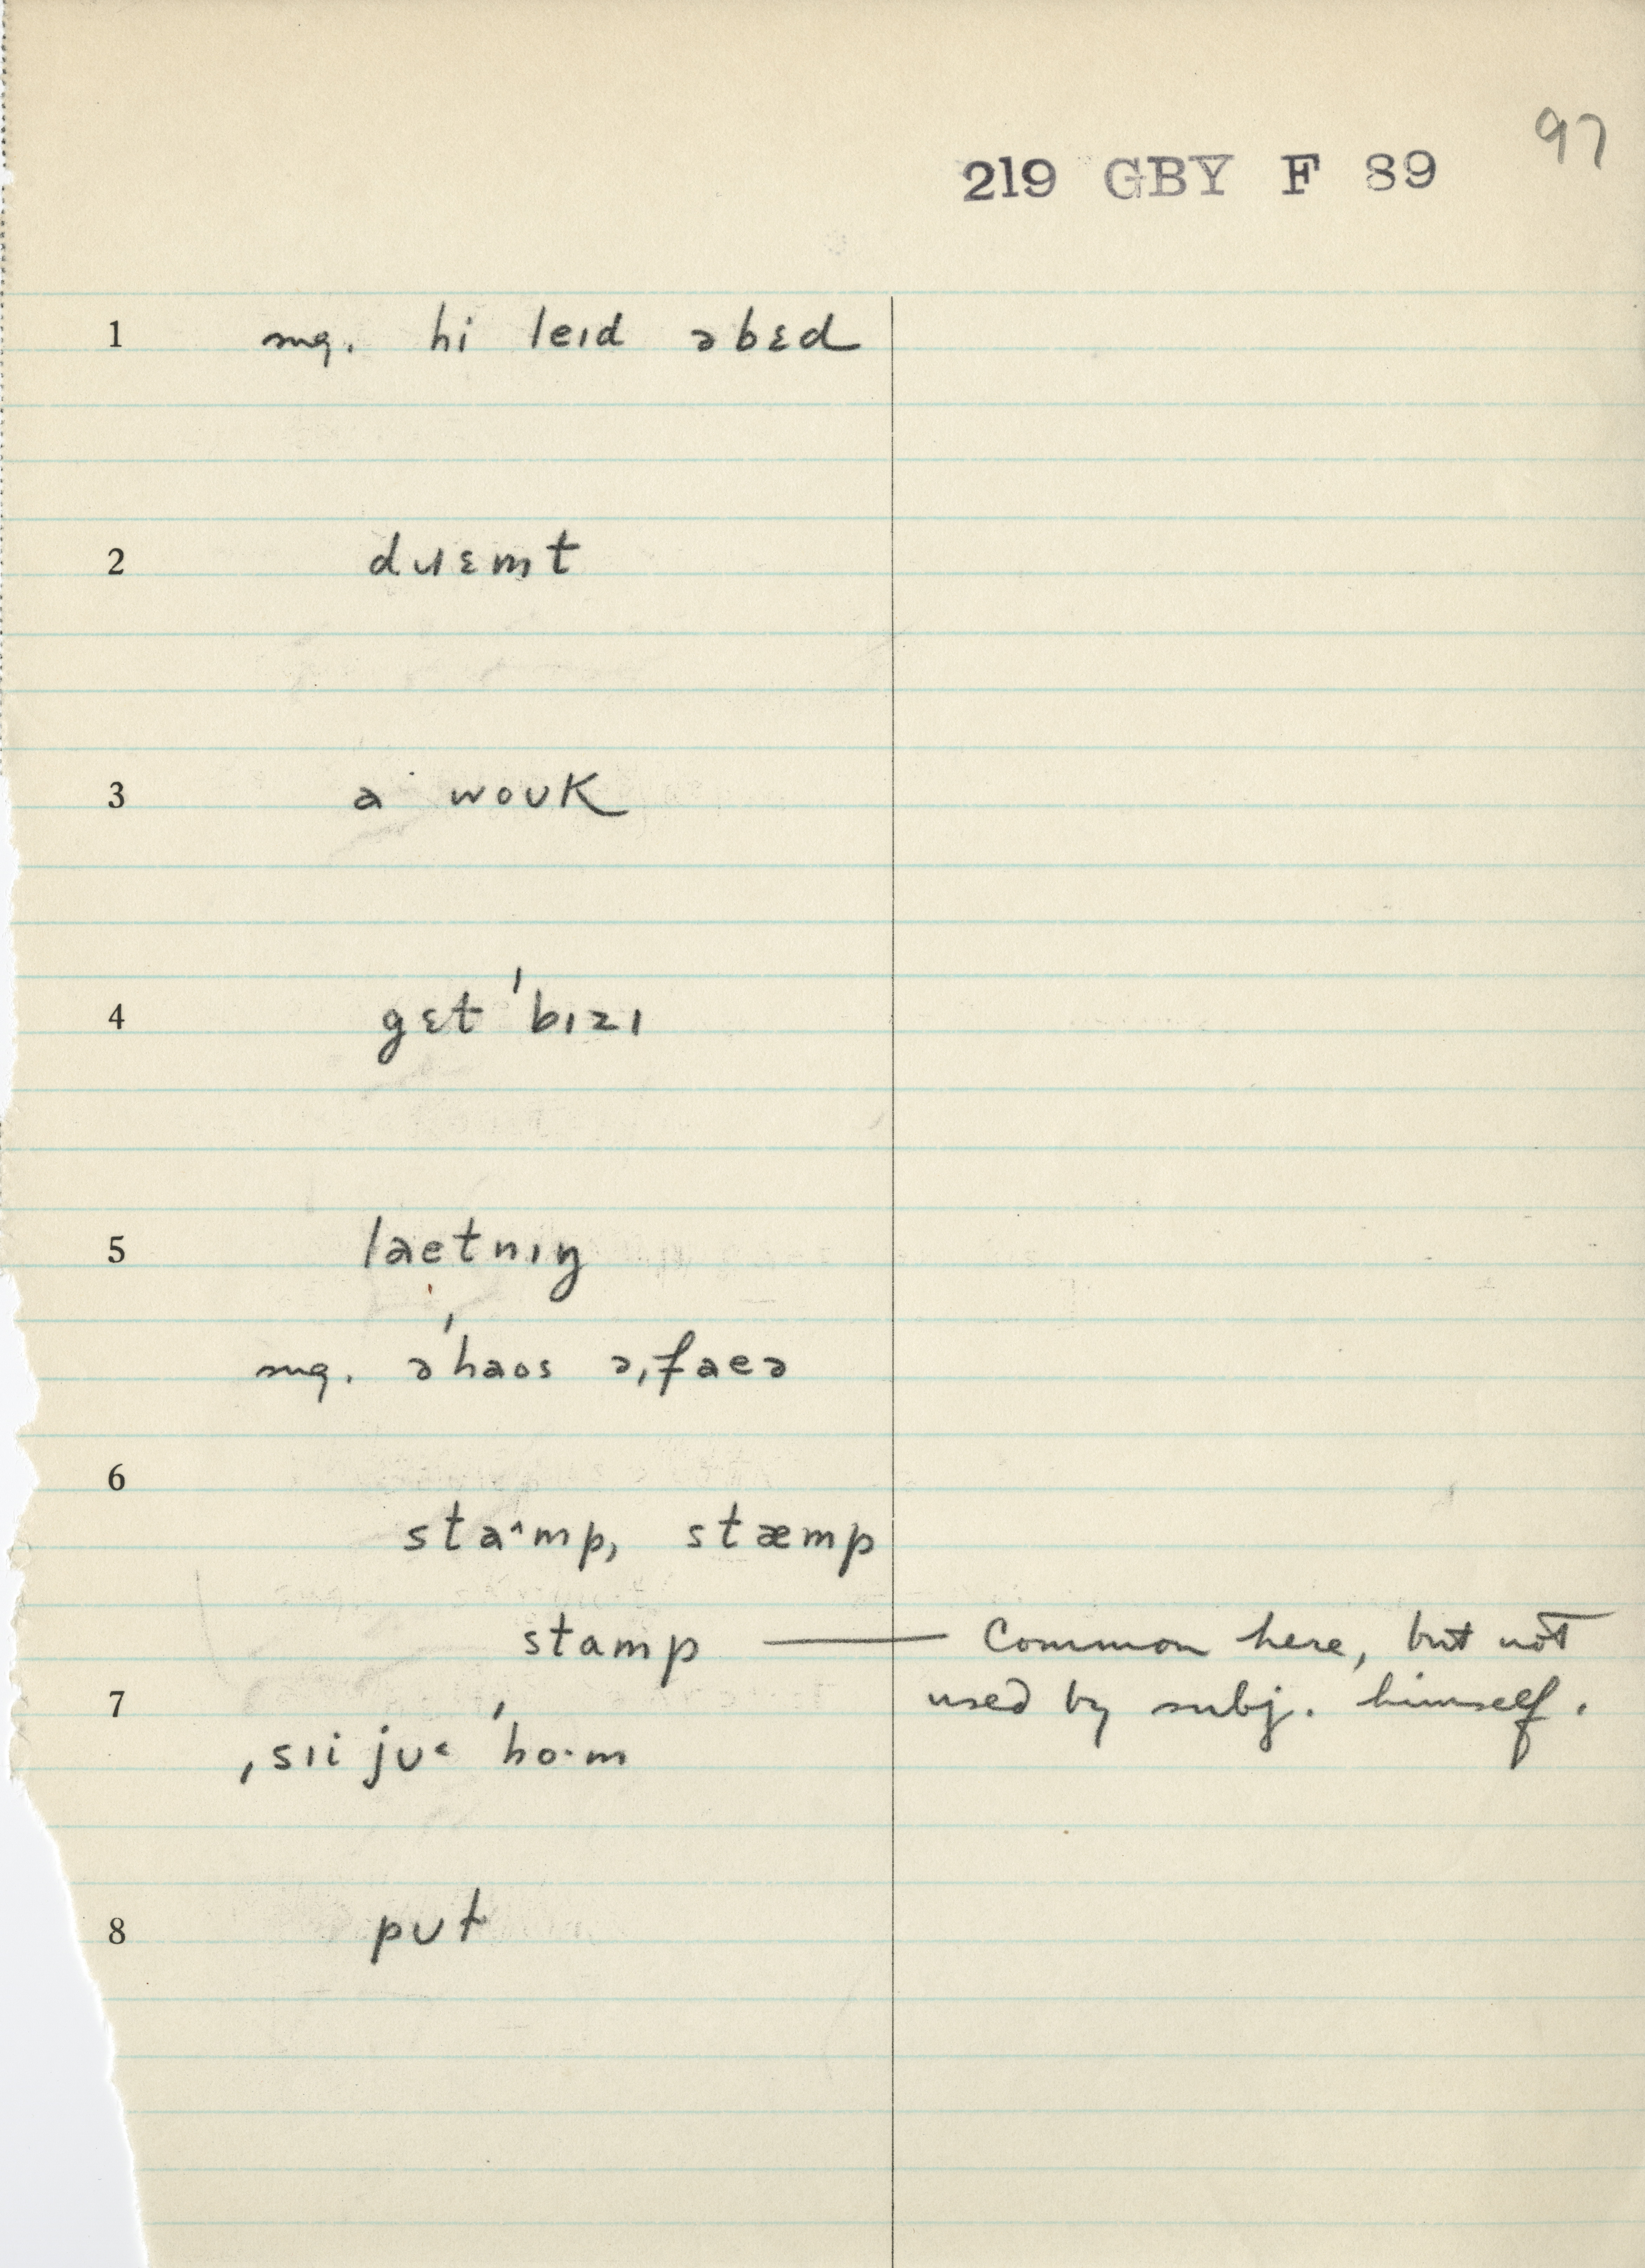 97
219 GBY F 89
1 sug. hi leɪd əbɛd
2 dɹɛmt
3 a woʊk
4 gɛt ˈbɪzɪ
5 laetnɪŋ
sug. əˈhaos əˌfaeə
6
sta˄mp, stæmp
stamp — Common here, but not
7 used by subj. himself.
ˌsɪi jʊ˂ ˈho·m
8 pʊt